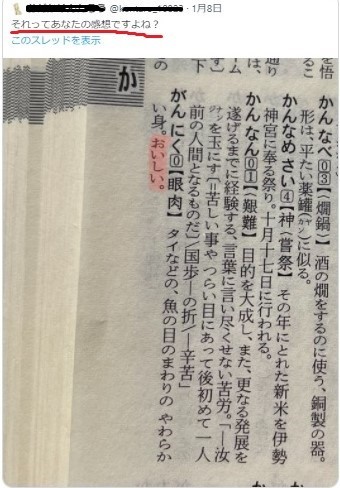 ・1月8日
それってあなたの感想ですよね？
このスレッドを表示
か
かんなべ⓪③【燗鍋】 酒の燗をするのに使う、銅製の器。
形は、平たい薬罐(カン)に似る。
かんなめ さい④【神(嘗祭】 その年にとれた新米を伊勢
神宮に奉る祭り。十月十七日に行われる。
かん なん⓪①【艱難】 目的を大成し、また、更なる発展を
遂げるまでに経験する、言葉に言い尽くせない苦労。「―汝
を玉にす〔＝苦しい事や つらい目にあって後初めて一人
前の人間となるものだ〕／国歩―の折／―辛苦」
がん にく⓪【眼肉】 タイなどの、魚の目のまわりの やわらか
い身。おいしい。